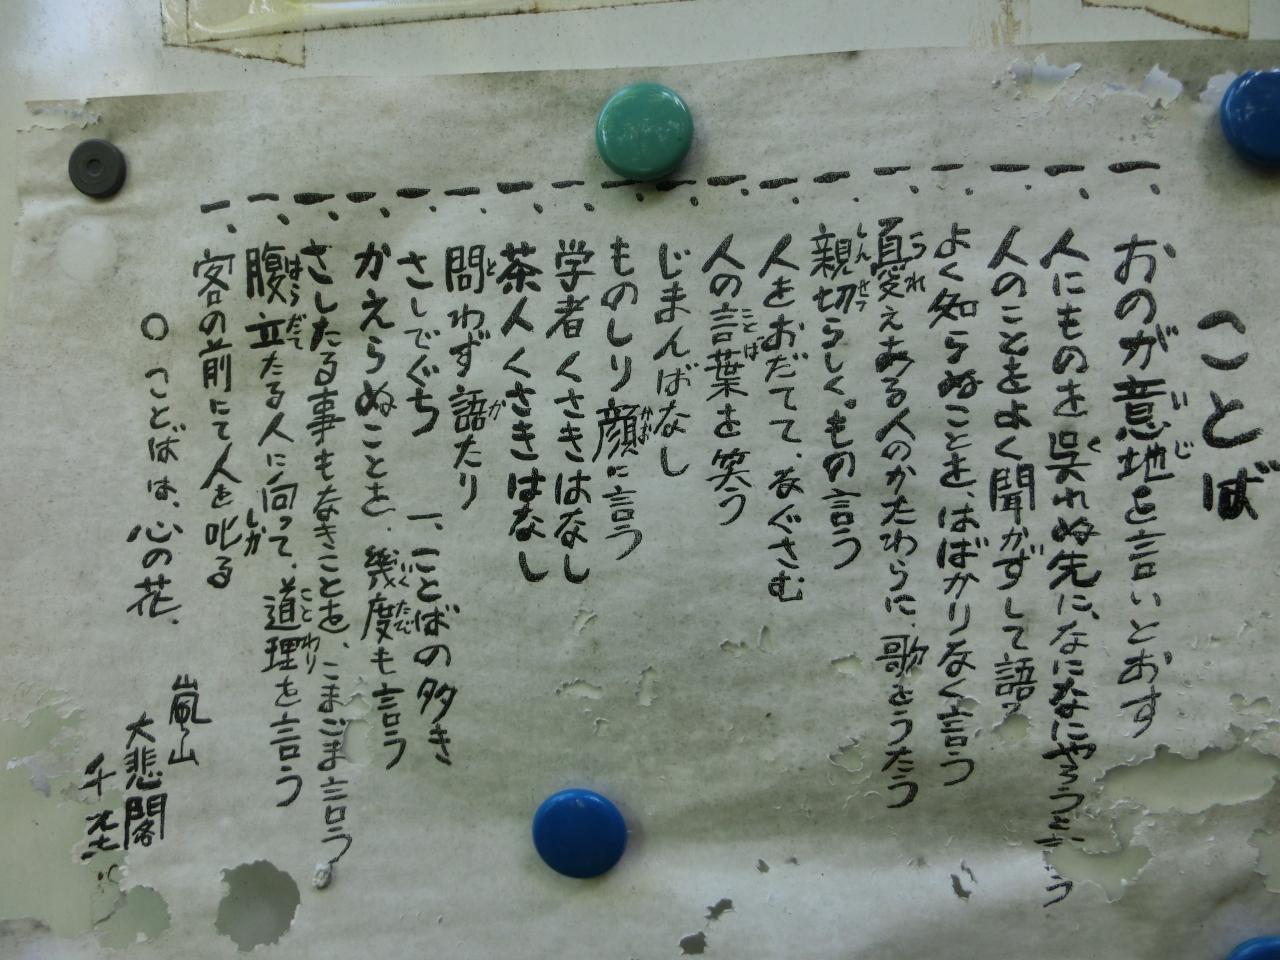 ことば
一、おのが意地を言いとおす
一、人にものを呉れぬ先に、なになにやろうと言う
一、人のことをよく聞かずして語る
一、よく知らぬことを、はばかりなく言う
一、憂えある人のかたわらに、歌をうたう
一、親切らしく、もの言う
一、人をおだてて、なぐさむ
一、人の言葉を笑う
一、じまんばなし
一、ものしり顔に言う
一、学者くさきはなし
一、茶人くさきはなし
一、問わず語たり
一、さしでぐち 一、ことばの多き
一、かえらぬことを、幾度も言う
一、さしたる事もなきことを、こまごま言う
一、腹立たる人に向って、道理を言う
一、客の前にて人を叱る
○ことばは、心の花、
嵐山
大悲閣
千光